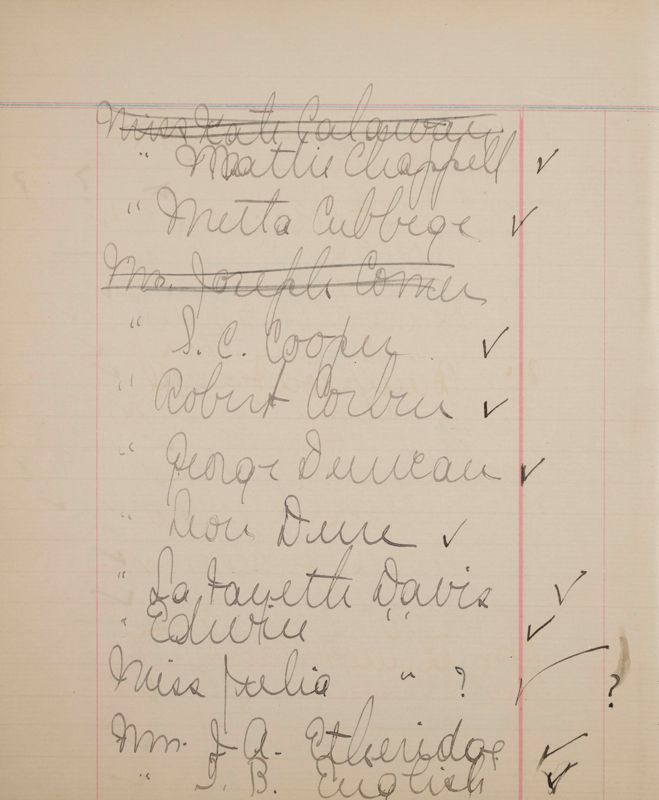 Miss Kate Calawan
" Mattie Chappell ✓
" Metta Cubbege ✓
Mr. Joseph Comer
" S. C. Cooper ✓
" Robert Corbin ✓
" George Duncan ✓
" Leon Dure ✓
" La Fayette Davis ✓
" Edwin " ✓
Miss Julia " ? ✓ ?
Mr. J. A. Etheridge ✓
" T. B. English ✓